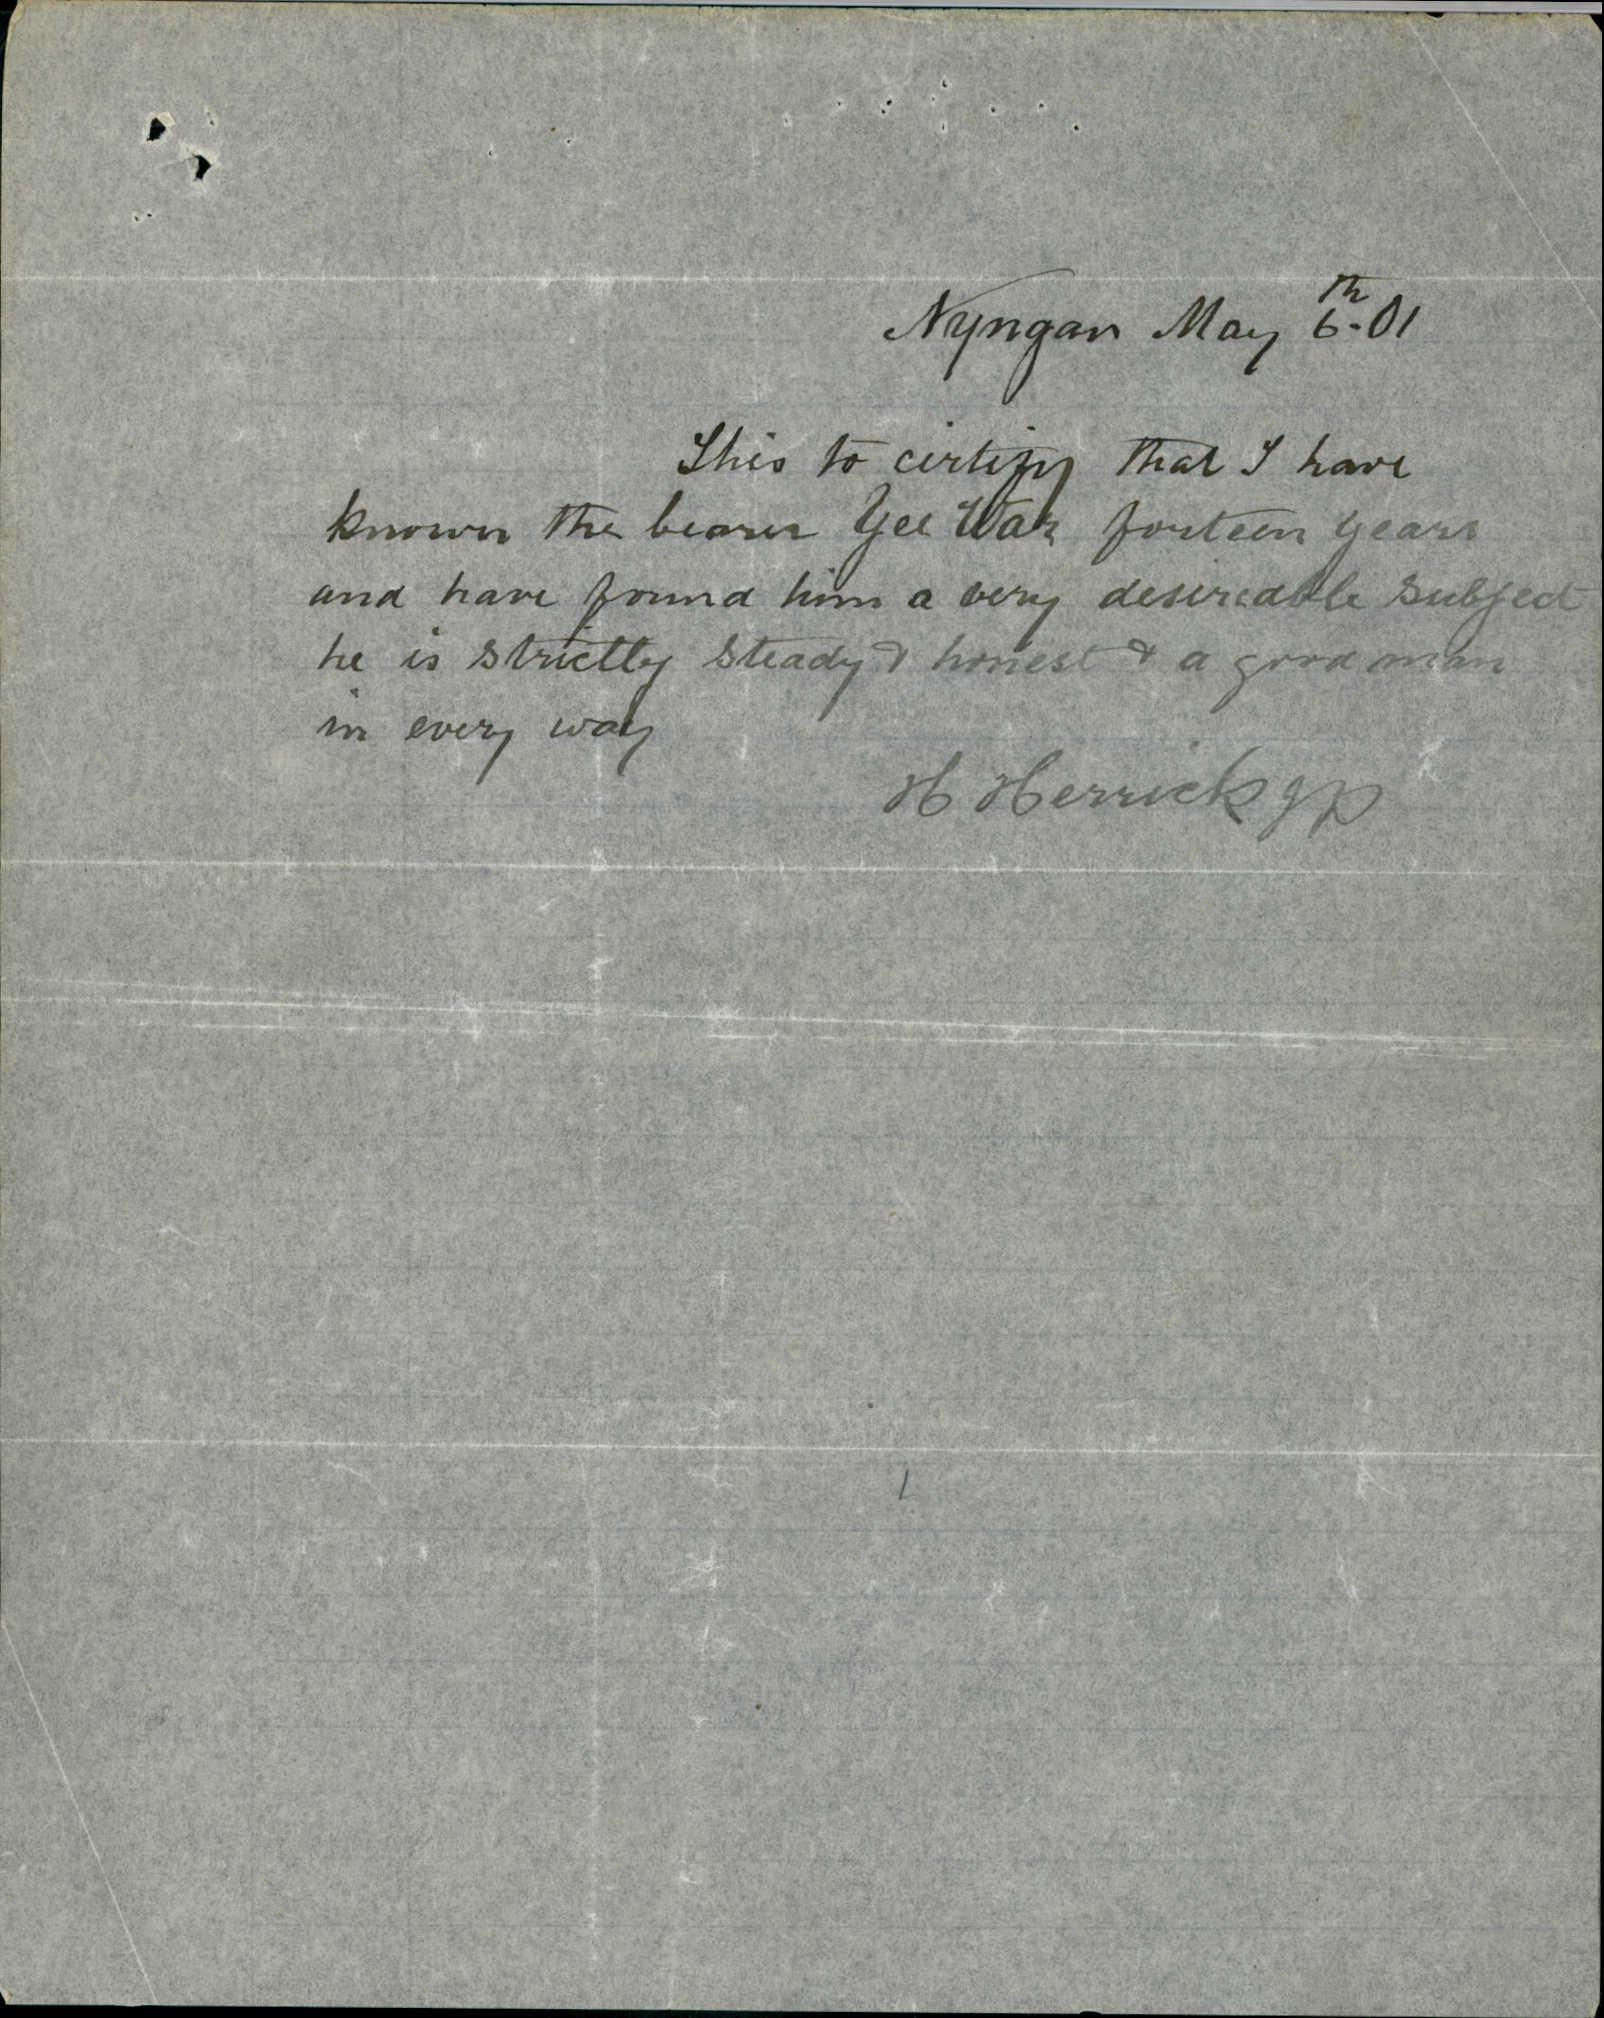 Nyngan May 6th-01
This to certify that I have
known the bearer Yee Wah forteen years
and have found him a very desireable subject
he is strictly steady & honest & a good man
in every way
H Herrick JP